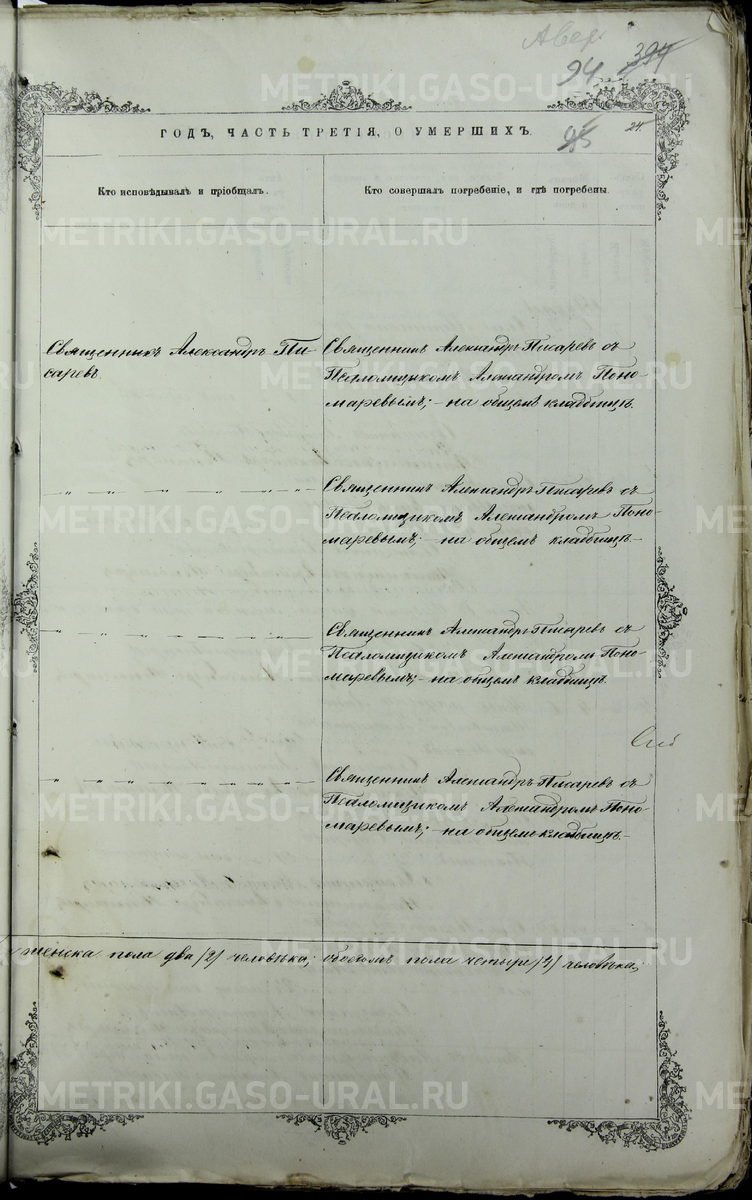 Авер.
94 394
95 24.
ГОДЪ, ЧАСТЬ ТРЕТІЯ, О УМЕРШИХЪ.
Кто исповѣдывалъ и пріобщалъ.
Кто совершалъ погребеніе, и гдѣ погребены.
Священникъ Александръ Пи-
саревъ.
Священникъ Александръ Писаревъ съ
Псаломщикомъ Александромъ Поно-
маревымъ; - на общемъ кладбищѣ.
— „ — „ — „ — „ — „ — „ —
Священникъ Александръ Писаревъ съ
Псаломщикомъ Александромъ Поно-
маревымъ; - на общемъ кладбищѣ. -
— „ — „ — „ — „ — „ — „ —
Священникъ Александръ Писаревъ съ
Псаломщикомъ Александромъ Поно-
маревымъ; - на общемъ кладбищѣ.
— „ — „ — „ — „ — „ — „ —
Священникъ Александръ Писаревъ съ
Псаломщикомъ Александромъ Поно-
маревымъ; - на общемъ кладбищѣ. -
женска пола два /2/ человѣка; обоего пола четыре /4/ человѣка;
METRIKI.GASO-URAL.RU